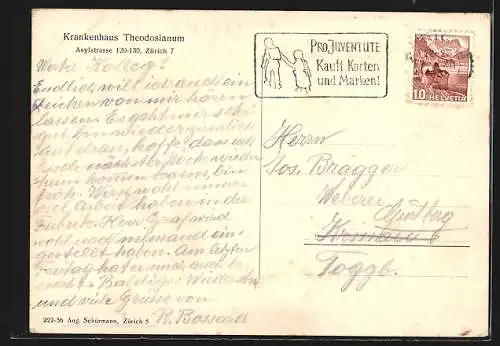 Krankenhaus Theodosianum
Asylstrasse 120-130, Zürich 7
PRO JUVENTUTE
Kauft Karten
und Marken!
10 HELVETIA
Werter Kolleg!
Endlich will ich auch ein
Zeichen von mir hören
lassen. Es geht mir sehr
gut bin wieder
auf dran, hoffe dass ich
Ende nächster Woche wieder
heim kommen kann, bin
froh. Werd wohl immer
viel Arbeit haben in der
Fabrik. Herr Graf wird
wohl noch niemand ein
gestellt haben. Am letzten
Freitag haben und auch
Baldiges Wiedersehn
und viele Grüsse von
R. Bossard
222-36 Aug. Schürmann, Zürich 5
Herrn
Jos. Brägger
Weberei
Krinau
Toggb.